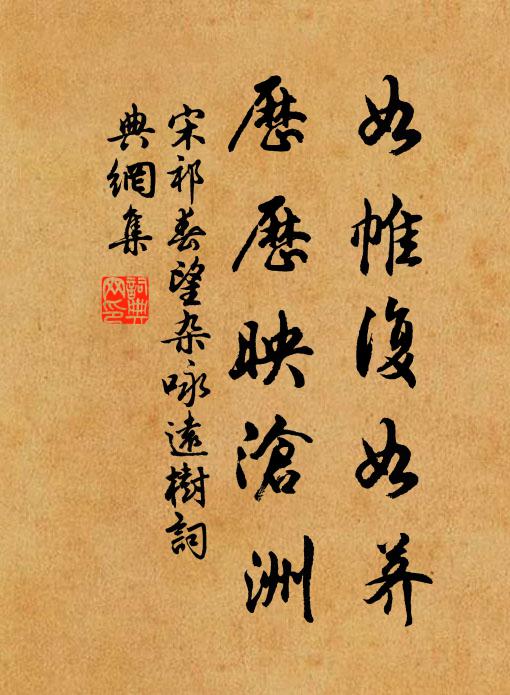 如帷復如荠
歷歷映滄洲
宋祁春望杂咏遠樹詞
典網集
詞典
网印